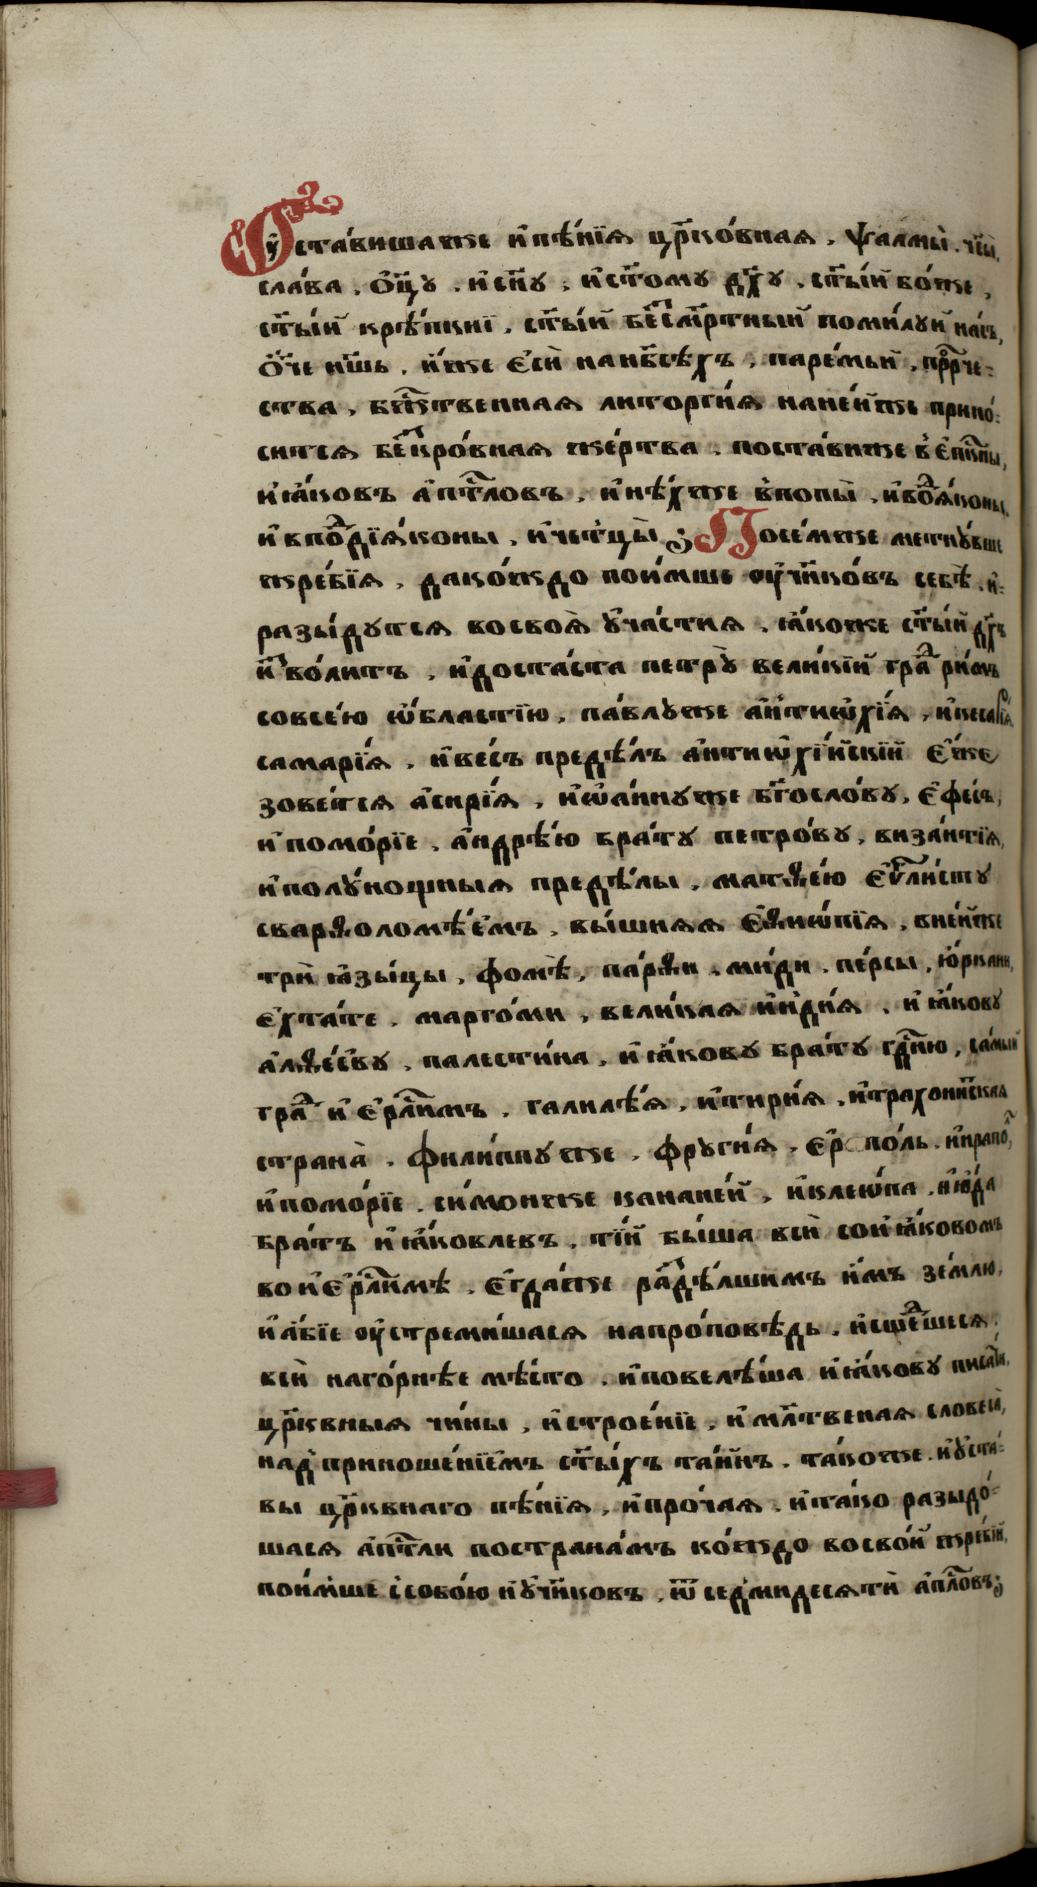 Оуставиша же и҆ пѣ́нїѧ цр҃ко́внаѧ . ѱалмы̀ . чи́ны,
сла́ва . ѻ҆ц҃у . и҆ сн҃у . и҆ ст҃о́му дх҃у . ст҃ы́й бо́же ,
ст҃ы́й крѣ́пкиї . ст҃ы́й бе́ссмр҃тный поми́луй на́съ,
ѻ҆́ч҃е на́шь . и҆́же є҆сѝ на нб҃сѣ́хъ , паремьи̑ , прⷪ҇рче-
ства , бж҃ственнаѧ литоргі́ѧ на не́йже прино́-
ситсѧ бе́скро́внаѧ же́ртва . поста́виже в є҆пⷭ҇кпы,
и҆ ꙗ҆́ковъ а҆пⷭ҇толовъ , и҆ нѣ́хже в попы̀ , и҆ во дїѧ́коны,
и҆ в подїѧ́коны , и҆ четцы̀ ; По се́мже метну́вше
жре́бїѧ , да ко́ждо пои́мше оу҆ч҃нко́въ себѣ̀ . и҆-
разы́дутсѧ во своѧ̀ у҆ча́стиѧ . ꙗ҆́коже ст҃ы́й дх҃ъ
и҆зво́литъ , и҆ доста́ста петрꙋ̀ вели́кїй гра́дъ ри́мъ
со все́ю ѡ҆́бластїю , па́влуже а҆нтиѡ҆хі́ѧ , и҆ кесарі́ѧ
самарі́ѧ . и҆ ве́сь предѣ́лъ а҆нтиѡ҆хі́йскїй є҆́же
зове́тсѧ а҆сирі́ѧ , и҆ѡ҆а́ннуже бг҃осло́ву , є҆фе́съ,
и҆ помо́рїе . а҆ндрѣ́ю бра́ту петро́ву , византі́ѧ,
и҆ полу́нощныѧ предѣ́лы . матѳе́ю є҆ѵⷢ҇ли́сту
с варѳоломѣ́емъ , вы́шнѧѧ є҆ѳиѡ́пїѧ , в не́йже
трѝ ꙗ҆зы́цы , фомѣ̀ , па́рѳи . ми́ди . пе́рсы , ю҆ркани,
є҆хта́те . марго́ми , вели́каѧ и҆́ндиѧ . и҆ ꙗ҆́кову
а҆лѳе́еву , палести́на . и҆ ꙗ҆́кову бра́ту гдⷭ҇ню , са́мый
гра́дъ и҆є҆рⷭ҇ли́мъ . галилѣ́ѧ , и҆ тири́ѧ . и҆ трахони́йскаѧ
страна̀ . фили́ппуже . фруги́ѧ . є҆р по́ль . и҆ирапо́,
и҆ помо́рїе . си́монже канане́й , и҆ клеѡ́па . и҆ ю҆́да
бра́тъ и҆ ꙗ҆́ковлевъ . ті́и бы́ша всѝ со и҆ꙗ҆́ковомъ
во и҆є҆рⷭ҇ли́мѣ . є҆гда́же раздѣ́лшимъ и҆̀мъ зе́млю,
и҆ а҆́бїе оу҆стреми́шасѧ на про́повѣдь . и҆ сше́дшесѧ,
всѝ на го́рнѣе мѣ́сто . и҆ повелѣ́ша и҆ꙗ҆́кову писа́ти,
цр҃квныѧ чи́ны , и҆ строе́нїе , и҆ мл҃твенаѧ словеса̀,
над приноше́нїемъ ст҃ы́хъ та́инъ . та́коже . и҆ у҆ста́-
вы цр҃квнаго пѣ́нїѧ , и҆ про́чаѧ . и҆ та́ко разыдо́-
шасѧ а҆пⷭ҇тли по страна́мъ ко́ждо во сво́й жре́бїй,
пои́мше с собо́ю и҆ у҆ч҃нковъ , ѿ седми́десѧти а҆пⷭ҇ло́въ;